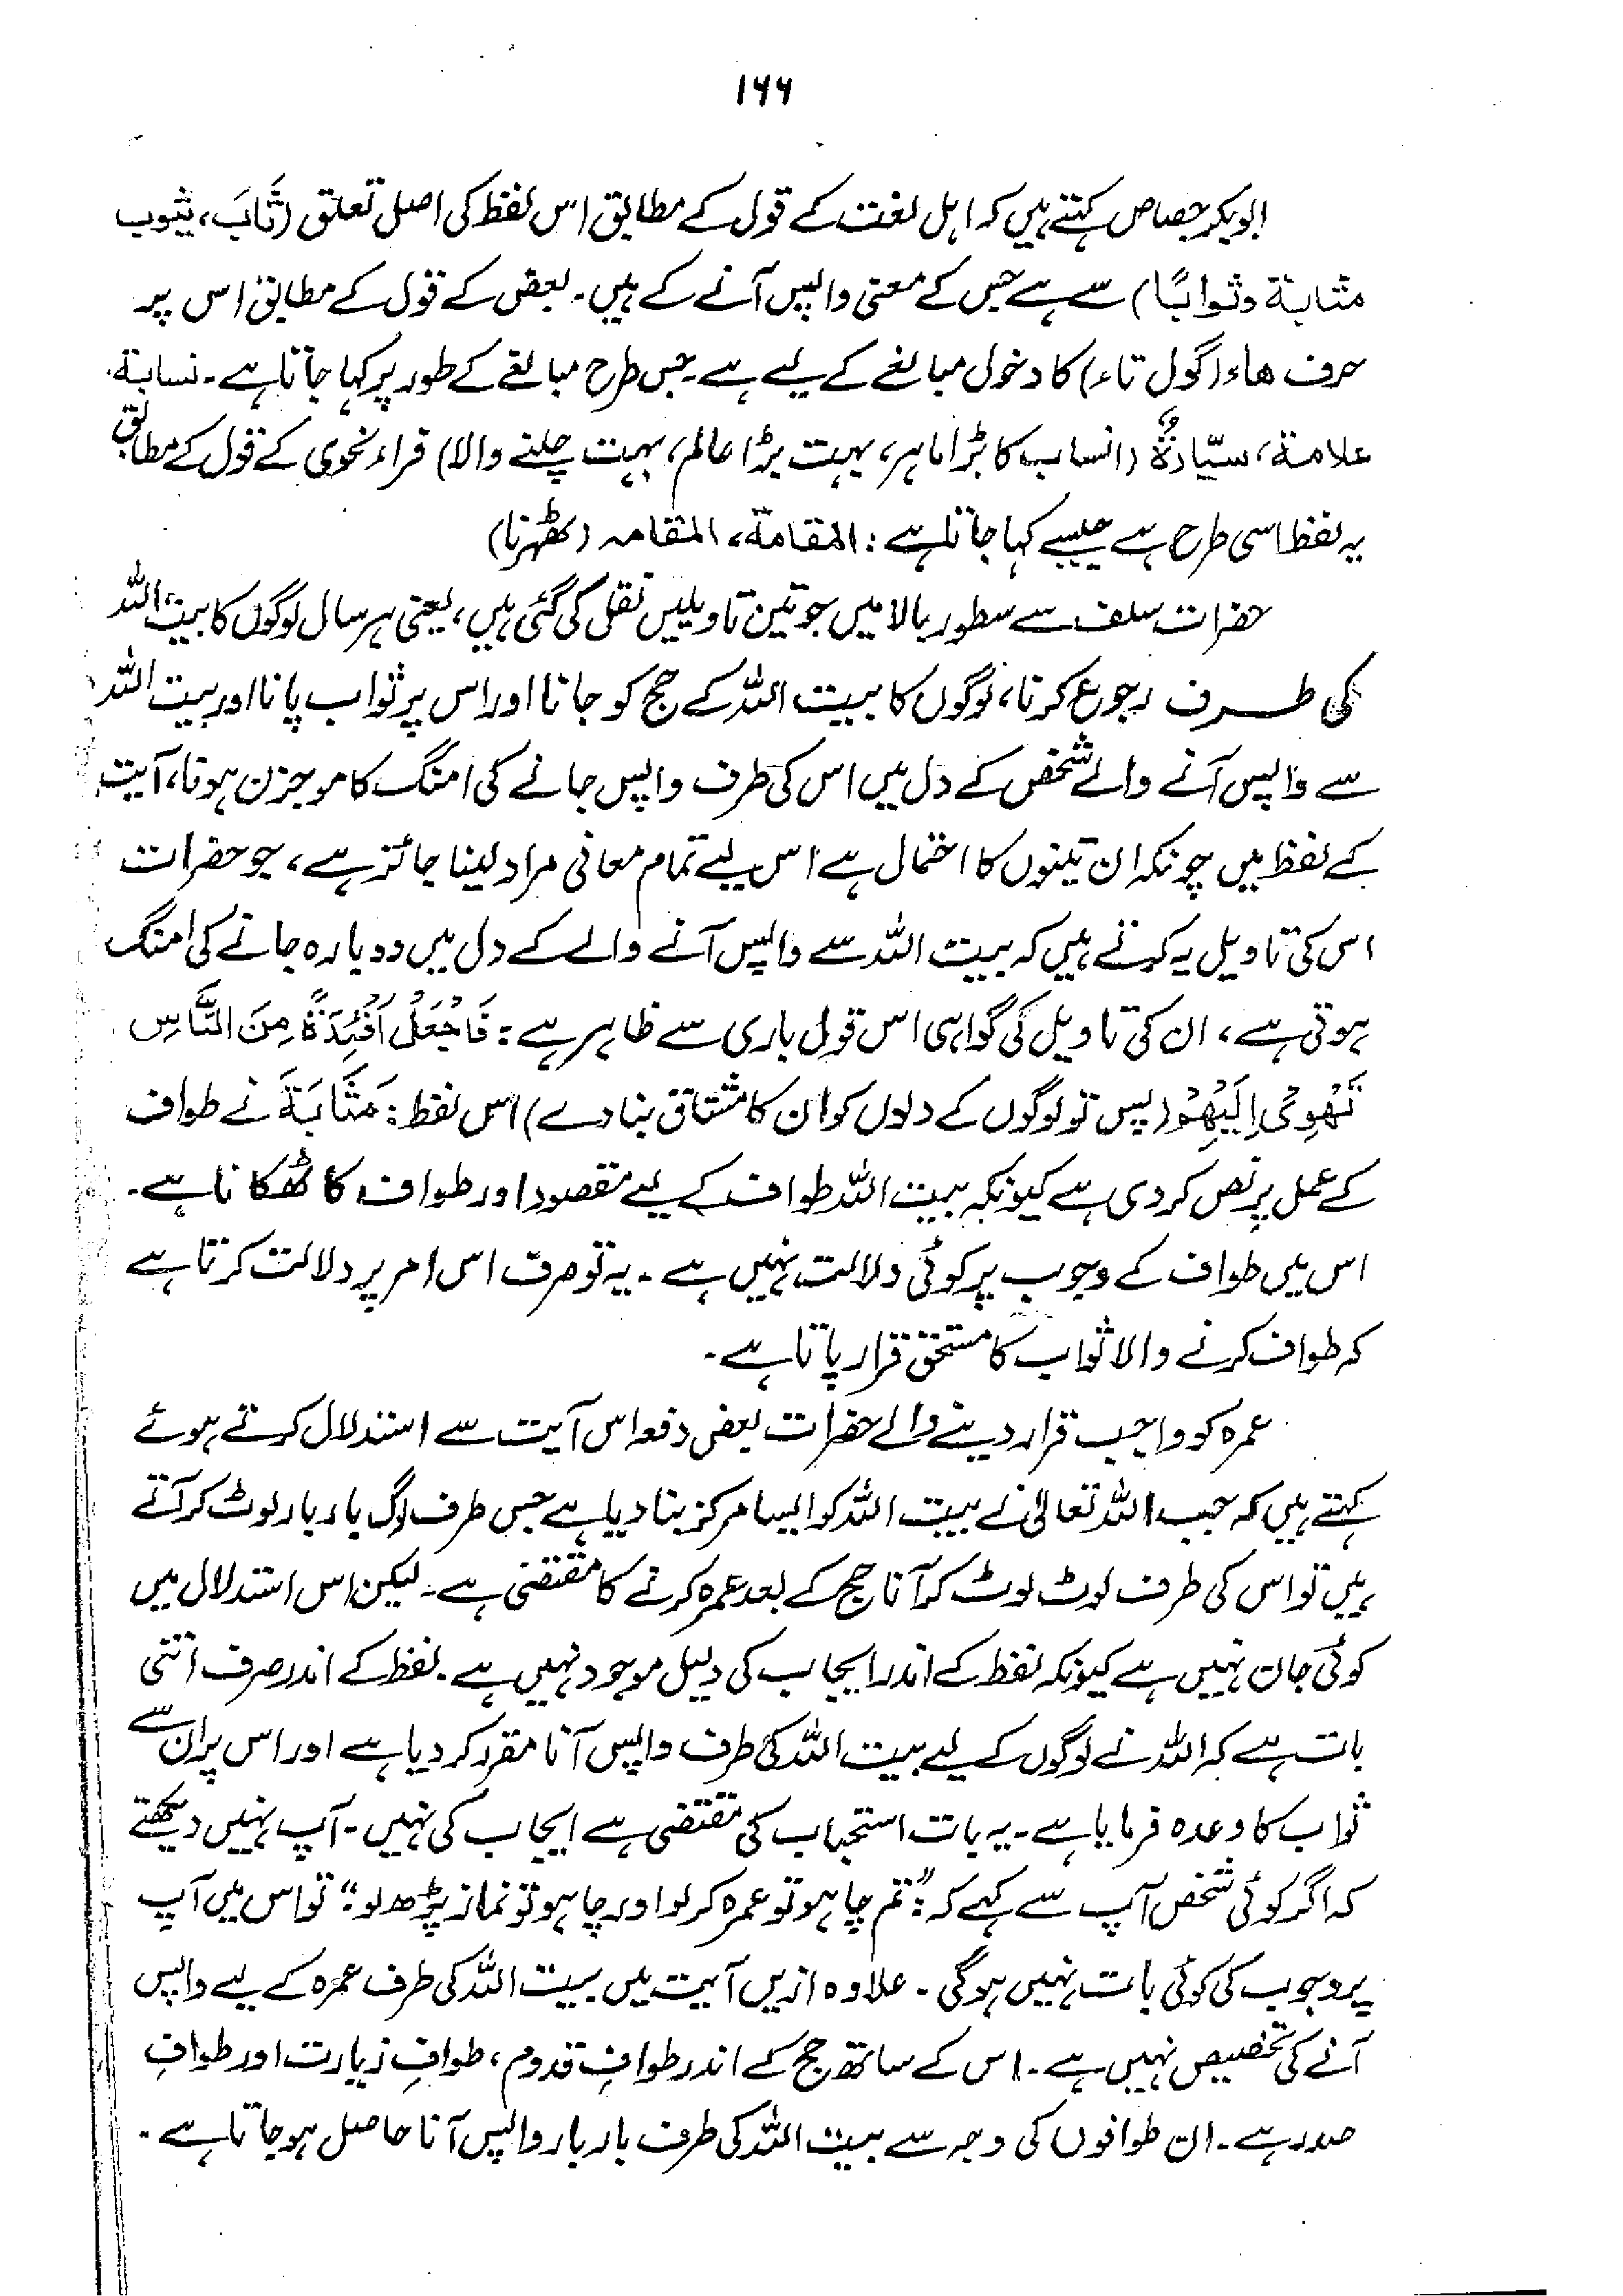 ۱۶۶
ابوبکر جصاص کہتے ہیں کہ اہل لغت کے قول کے مطابق اس لفظ کی اصل تعلق (ثَابَ، یثوب
مثابۃ وثوابًا) سے ہے جس کے معنی واپس آنے کے ہیں۔ بعض کے قول کے مطابق اس پر
حرف ھاء (گول تاء) کا دخول مبالغے کے لیے ہے۔ جس طرح مبالغے کے طور پر کہا جاتا ہے۔ نسابۃ،
علامۃ، سیّارۃٌ (انساب کا بڑا ماہر، بہت بڑا عالم، بہت چلنے والا) فراء نحوی کے قول کے مطابق
یہ لفظ اسی طرح ہے جیسے کہا جاتا ہے : المقامۃ، المقامہ (ٹھہرنا)
حضرات سلف سے سطور بالا میں جو تین تاویلیں نقل کی گئی ہیں، یعنی ہر سال لوگوں کا بیت اللہ
کی طرف رجوع کرنا، لوگوں کا بیت اللہ کے حج کو جانا اور اس پر ثواب پانا اور بیت اللہ
سے واپس آنے والے شخص کے دل میں اس کی طرف واپس جانے کی امنگ کا موجزن ہونا، آیت
کے لفظ میں چونکہ ان تینوں کا احتمال ہے اس لیے تمام معانی مراد لینا جائز ہے، جو حضرات
اس کی تاویل یہ کرتے ہیں کہ بیت اللہ سے واپس آنے والے کے دل میں دوبارہ جانے کی امنگ
ہوتی ہے، ان کی تاویل کی گواہی اس قول باری سے ظاہر ہے : فَاجْعَلْ اَفْئِدَةً مِنَ النَّاسِ
تَهْوِیْ اِلَیْهِمْ (پس تو لوگوں کے دلوں کو ان کا مشتاق بنا دے) اس لفظ : مَثَابَةً نے طواف
کے عمل پر نص کر دی ہے کیونکہ بیت اللہ طواف کے لیے مقصود اور طواف کا ٹھکانا ہے۔
اس میں طواف کے وجوب پر کوئی دلالت نہیں ہے۔ یہ تو صرف اس امر پر دلالت کرتا ہے
کہ طواف کرنے والا ثواب کا مستحق قرار پاتا ہے۔
عمرہ کو واجب قرار دینے والے حضرات بعض دفعہ اس آیت سے استدلال کرتے ہوئے
کہتے ہیں کہ جب اللہ تعالیٰ نے بیت اللہ کو ایسا مرکز بنا دیا ہے جس طرف لوگ بار بار لوٹ کر آتے
ہیں تو اس کی طرف لوٹ لوٹ کر آنا حج کے بعد عمرہ کرنے کا مقتضی ہے۔ لیکن اس استدلال میں
کوئی جان نہیں ہے کیونکہ لفظ کے اندر ایجاب کی دلیل موجود نہیں ہے۔ لفظ کے اندر صرف اتنی
بات ہے کہ اللہ نے لوگوں کے لیے بیت اللہ کی طرف واپس آنا مقرر کر دیا ہے اور اس پر ان سے
ثواب کا وعدہ فرمایا ہے۔ یہ بات استحباب کی مقتضی ہے ایجاب کی نہیں۔ آپ نہیں دیکھتے
کہ اگر کوئی شخص آپ سے کہے کہ : "تم چاہو تو عمرہ کر لو اور چاہو تو نماز پڑھ لو"؛ تو اس میں آپ
پر وجوب کی کوئی بات نہیں ہوگی۔ علاوہ ازیں آیت میں بیت اللہ کی طرف عمرہ کے لیے واپس
آنے کی تخصیص نہیں ہے۔ اس کے ساتھ حج کے اندر طوافِ قدوم، طوافِ زیارت اور طوافِ
صدر ہے۔ ان طوافوں کی وجہ سے بیت اللہ کی طرف بار بار واپس آنا حاصل ہو جاتا ہے۔